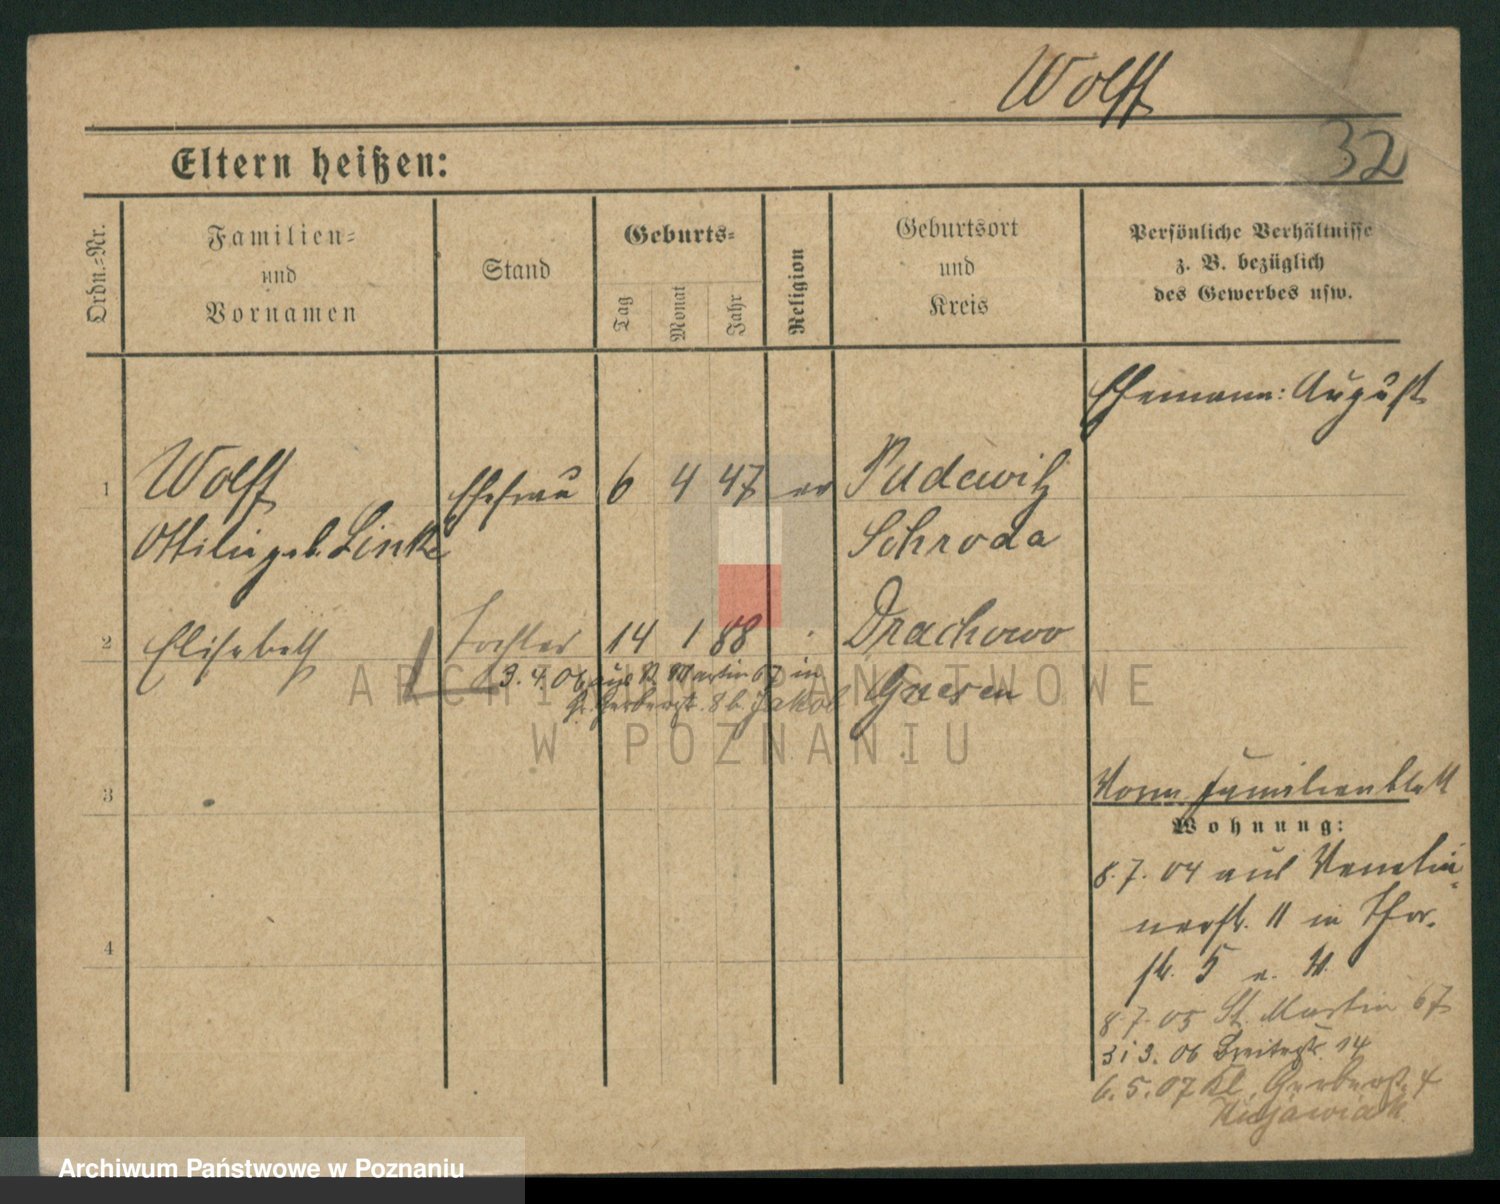 Wolff
32
Eltern heißen:
Ordn.-Nr.
Familien-
und
Vornamen
Stand
Geburts-
Tag
Monat
Jahr
Religion
Geburtsort
und
Kreis
Persönliche Verhältnisse
z. B. bezüglich
des Gewerbes usw.
Ehemann: August
1 Wolff Ehefrau 6 4 47 ev Pudewitz
Ottilie geb. Linke Schroda
2 Elisabeth Tochter 14 1 88 Drachowo
3.4.06 aus St. Martin 67 in
Gr. Gerberstr. 8 b. Jakob Gnesen
3
Vorn. Familienblatt
Wohnung:
8.7.04 aus Venetia-
nerstr. 11 in Thor-
str. 5 a. W.
8.7.05 St. Martin 67
31 3. 06 Breitestr. 14
6.5.07 Kl. Gerberstr. 4
Kujawiak
4
ARCHIWUM PAŃSTWOWE
W POZNANIU
Archiwum Państwowe w Poznaniu